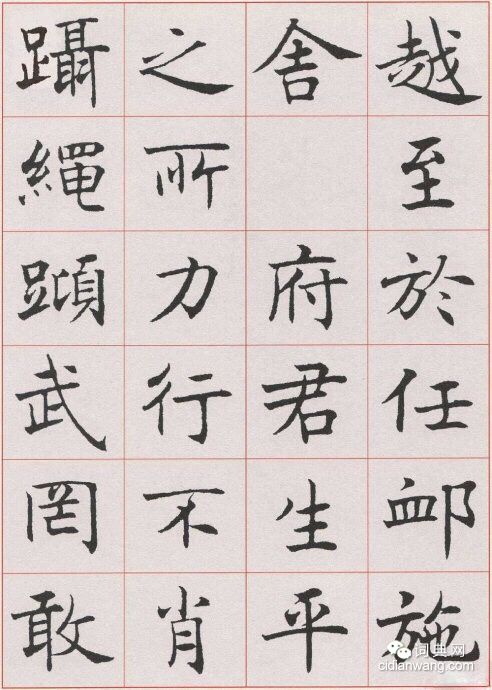 越至於任卹施
舍 府君生平
之所力行不肖
躡繩蹞武罔敢
词典网
cidianwang.com